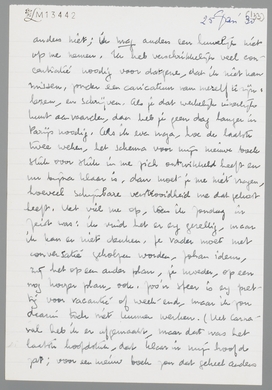 M13442
25 Jan 35
anders niet; ik mag anders een huwelijk niet
op me nemen. Ik heb verschrikkelijk veel con-
centratie noodig voor datgene, dat ik niet kan
missen, zonder een caricatuur van mezelf te zijn:
lezen, en schrijven. Als je dat werkelijk innerlijk
kunt aanvaarden, dan heb je geen dag langer in
Parijs noodig. Als ik even naga, hoe de laatste
twee weken, het schema voor mijn nieuwe boek
stuk voor stuk in me zich ontwikkeld heeft en
nu bijna klaar is, dan moet je me niet vragen,
hoeveel schijnbare verstrooidheid me dat gekost
heeft. Het viel me op, toen ik Zondag in
Zeist was: ik vind het er erg gezellig, maar
ik kan er niet denken. Je vader moet met
conversatie geholpen worden, Johan idem,
zij het op een ander plan, je moeder, op een
nog hooger plan, ook. Zoo'n sfeer is erg pret-
tig voor vacantie of week-end, maar ik zou
daarin toch niet kunnen werken. (Het Carna-
val heb ik er afgemaakt, maar dat was het
laatste hoofdstuk, dat klaar in mijn hoofd
zat; voor een nieuw boek zou dat geheel anders